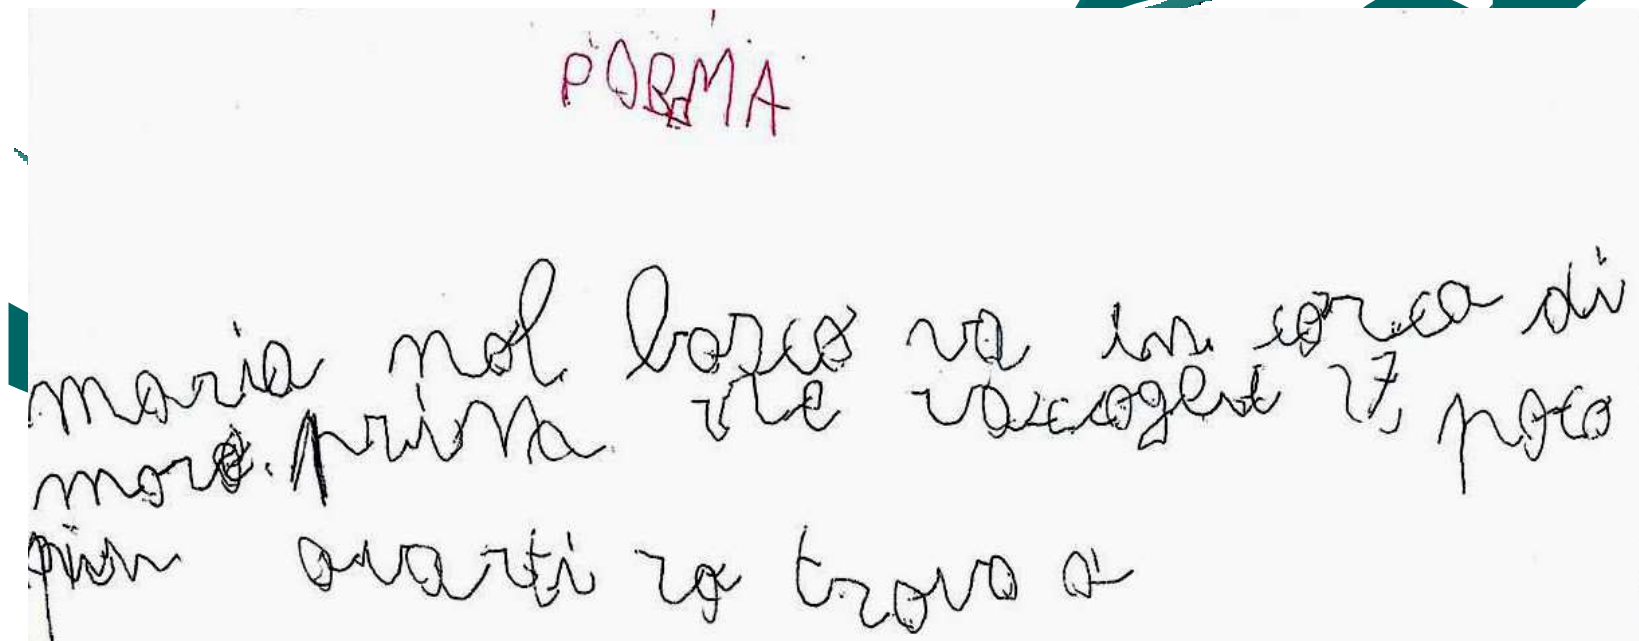 PORMA
maria nel bosco va in cerca di
more. prima ne raccoglie 27, poco
piu avanti ne trova